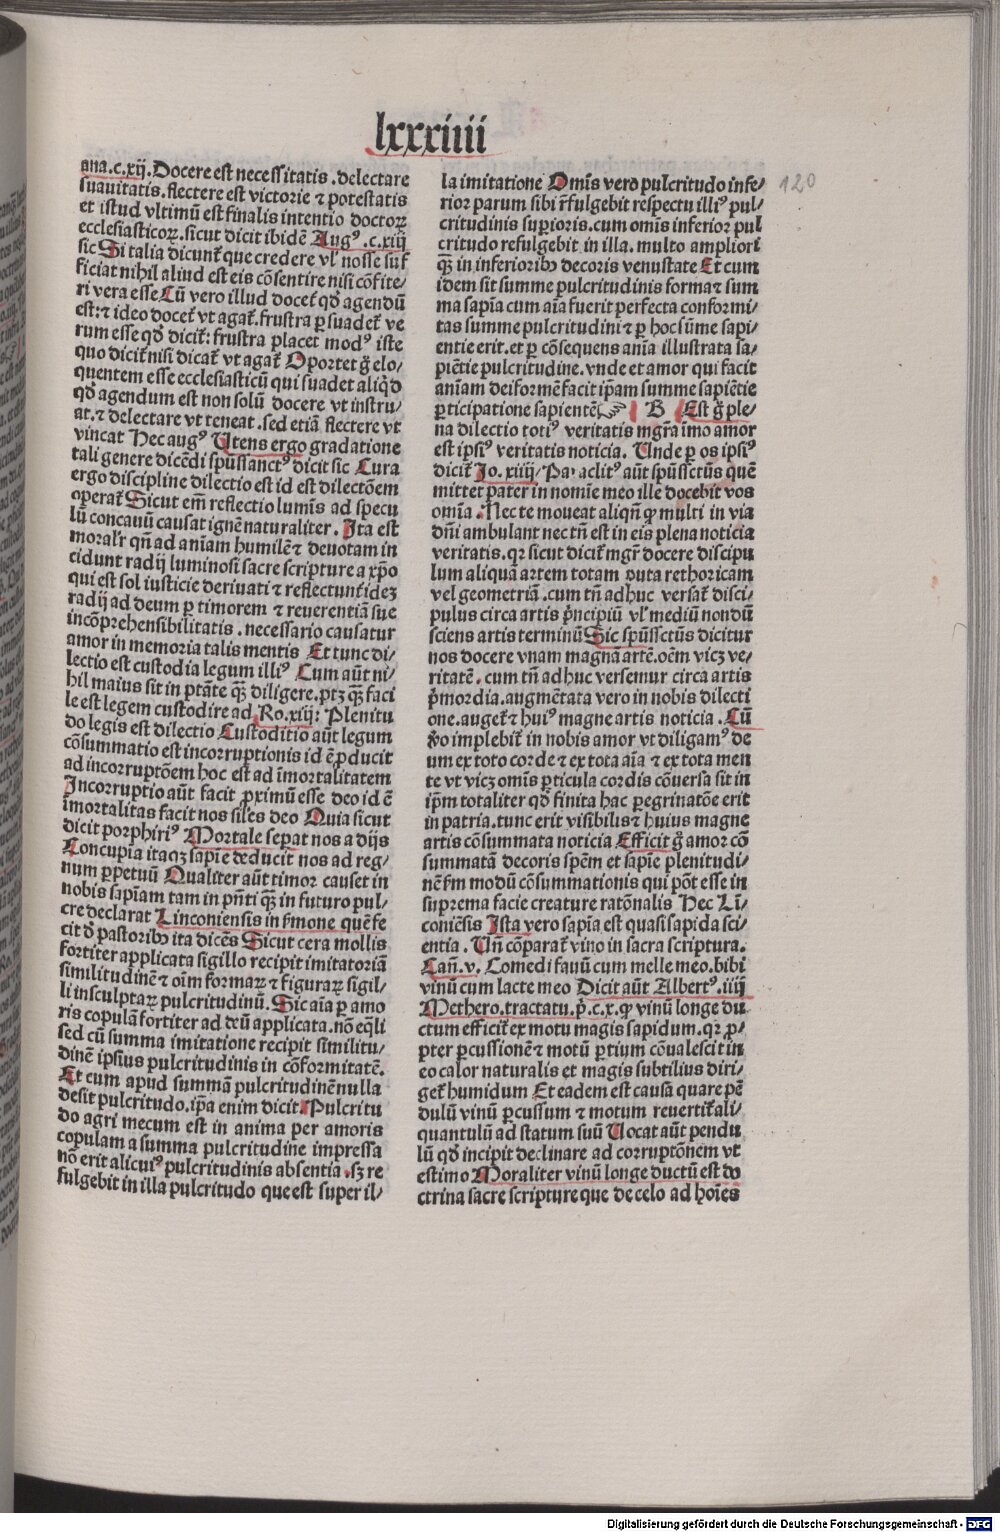 lxxxiiii
120
ana.c.xij.Docere est necessitatis.delectare
suauitatis.flectere est victorie ⁊ potestatis
et istud vltimū est finalis intentio doctoꝝ
ecclesiasticoꝝ.sicut dicit ibidē Augꝰ.c.xiij
sic Si talia dicunt᷑ que credere vl᷑ nosse suf
ficiat nihil aliud est eis cōsentire nisi cōfite/
ri vera esse Cū vero illud docet᷑ qd̓ agendū
est:⁊ ideo docet᷑ vt agat᷑.frustra ꝑsuadet᷑ ve
rum esse qd̓ dicit᷑:frustra placet modꝰ iste
quo dicit᷑ nisi dicat᷑ vt agat᷑ Oportet g̊ elo/
quentem esse ecclesiasticū qui suadet aliqd̓
qd̓ agendum est non solū docere vt instru/
at.⁊ delectare vt teneat.sed etiā flectere vt
vincat Hec augꝰ Utens ergo gradatione
tali genere dicēdi spūssanctꝰ dicit sic Cura
ergo discipline dilectio est id est dilectōem
operat᷑ Sicut em̄ reflectio lumīs ad specu
lū concauū causat ignē naturaliter. Ita est
moral'r qn̄ ad aniam humilē ⁊ deuotam in
cidunt radij luminosi sacre scripture a xp̄o
qui est sol iusticie deriuati ⁊ reflectunt᷑ ideꝫ
radij ad deum ꝑ timorem ⁊ reuerentiā sue
incōprehensibilitatis.necessario causatur
amor in memoria talis mentis Et tunc di/
lectio est custodia legum illiꝰ Cum aūt ni/
hil maius sit in ptāte qꝫ̄ diligere.ptꝫ qꝫ̄ faci
le est legem custodire ad Ro.xiij: Plenitu
do legis est dilectio Custoditio aūt legum
cōsummatio est incorruptionis id ē ꝓducit
ad incorruptōem hoc est ad īmortalitatem
Incorruptio aūt facit ꝓximū esse deo id ē
īmortalitas facit nos sil'es deo Quia sicut
dicit porphiriꝰ Mortale sepat nos a dijs
Concupia itaqꝫ sapīe deducit nos ad reg/
num ꝑpetuū Qualiter aūt timor causet in
nobis sapīam tam in pn̄ti qꝫ̄ in futuro pul/
cre declarat Linconiensis in ẜmone quē fe
cit d̓ pastoribꝰ ita dicēs Sicut cera mollis
fortiter applicata sigillo recipit imitatoriā
similitudinē ⁊ oīm formaꝝ ⁊ figuraꝝ sigil/
li insculptaꝝ pulcritudinū.Sic aīa ꝑ amo
ris copulā fortiter ad deū applicata.nō eq̄li
sed cū summa imitatione recipit similitu/
dinē ipsius pulcritudinis in cōformitatē.
Et cum apud summā pulcritudinē nulla
desit pulcritudo.ip̄a enim dicit Pulcritu
do agri mecum est in anima per amoris
copulam a summa pulcritudine impressa
nō erit alicuiꝰ pulcritudinis absentia.sꝫ re
fulgebit in illa pulcritudo que est super il/
la imitatione Omīs vero pulcritudo infe/
rior parum sibi r̄fulgebit respectu illiꝰ pul/
critudinis suꝑioris.cum omīs inferior pul
critudo refulgebit in illa.multo ampliori
qꝫ̄ in inferioribꝰ decoris venustate Et cum
idem sit summe pulcritudinis forma ⁊ sum
ma sapīa cum aīa fuerit perfecta conformi/
tas summe pulcritudini ⁊ ꝑ hoc sūme sapi/
entie erit.et ꝑ cōsequens anīa illustrata sa/
piētie pulcritudine.vnde et amor qui facit
aniam deiformē facit ip̄am summe sapiētie
ꝑticipatione sapientē☞ B Est g̊ ple/
na dilectio totiꝰ veritatis mgr̄a imo amor
est ipsiꝰ veritatis noticia. Unde ꝑ os ipsiꝰ
dicit᷑ Jo.xiiij Paraclitꝰ aūt spūssctūs quē
mittet pater in nomīe meo ille docebit vos
omīa. Nec te moueat aliqn̄ ꝙ multi in via
dn̄i ambulant nec tn̄ est in eis plena noticia
veritatis.qꝛ sicut dicit᷑ mgr̄ docere discipu
lum aliquā artem totam puta rethoricam
vel geometriā.cum tn̄ adhuc versat᷑ disci/
pulus circa artis pͥncipiū vl᷑ mediū nondū
sciens artis terminū Sic spūssctūs dicitur
nos docere vnam magnā artē.oēm vicꝫ ve/
ritatē. cum tn̄ adhuc versemur circa artis
pͥmordia.augmētata vero in nobis dilecti
one.auget᷑ ⁊ huiꝰ magne artis noticia. Cū
v̊o implebit᷑ in nobis amor vt diligamꝰ de
um ex toto corde ⁊ ex tota aīa ⁊ ex tota men
te vt vicꝫ omīs ꝑticula cordis cōuersa sit in
ip̄m totaliter qd̓ finita hac ꝑegrinatōe erit
in patria.tunc erit visibilis ⁊ huius magne
artis cōsummata noticia Efficit g̊ amor cō
summatā decoris spēm et sapīe plenitudi/
nē ẜm modū cōsummationis qui pōt esse in
suprema facie creature ratōnalis Hec Lī/
coniēsis Ista vero sapīa est quasi sapida sci/
entia. Un̄ cōparat᷑ vino in sacra scriptura.
Cañ.v. Comedi fauū cum melle meo.bibi
vinū cum lacte meo Dicit aūt Albertꝰ.iiij
Methero.tractatu.p̄.c.x.ꝙ vinū longe du
ctum efficit᷑ ex motu magis sapidum.qꝛ ꝓ/
pter ꝑcussionē ⁊ motū ꝑtium cōualescit in
eo calor naturalis et magis subtilius diri/
get᷑ humidum Et eadem est causa quare pē
dulū vinū ꝑcussum ⁊ motum reuertit᷑ ali/
quantulū ad statum suū Uocat aūt pendu
lū qd̓ incipit declinare ad corruptōnem vt
estimo Moraliter vinū longe ductū est do
ctrina sacre scripture que de celo ad hoīes
Digitalisierung gefördert durch die Deutsche Forschungsgemeinschaft - DFG